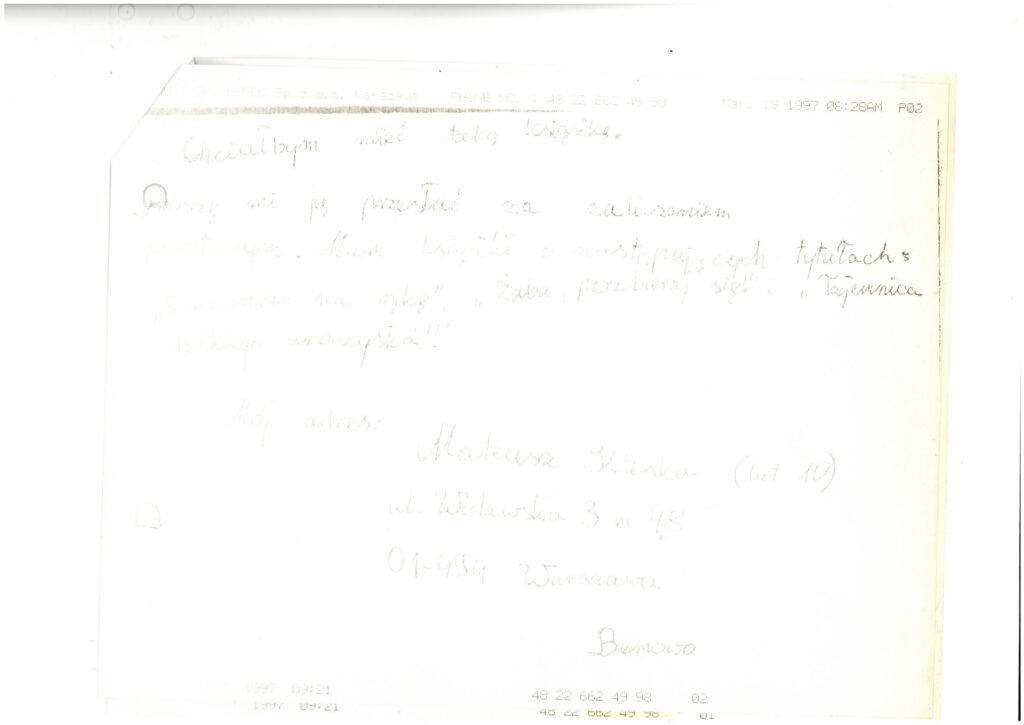 EUROC Sp.z o.o. Warszawa PHONE NO. : 48 22 662 49 98 Mar. 19 1997 08:28AM P02
Chciałbym mieć taką książkę.
Proszę mi ją przesłać za zaliczeniem
pocztowym. Mam książki o następujących tytułach:
na rękę", „Żaba, pozbieraj się!" i „Tajemnica
dzikiego uroczyska"!
Mój adres:
Mateusz Kliska (lat 10)
ul. Widawska 3 m 48
01-494 Warszawa
Bemowo
1997 09:21 48 22 662 49 98 02
1997 09:21 48 22 662 49 98 01